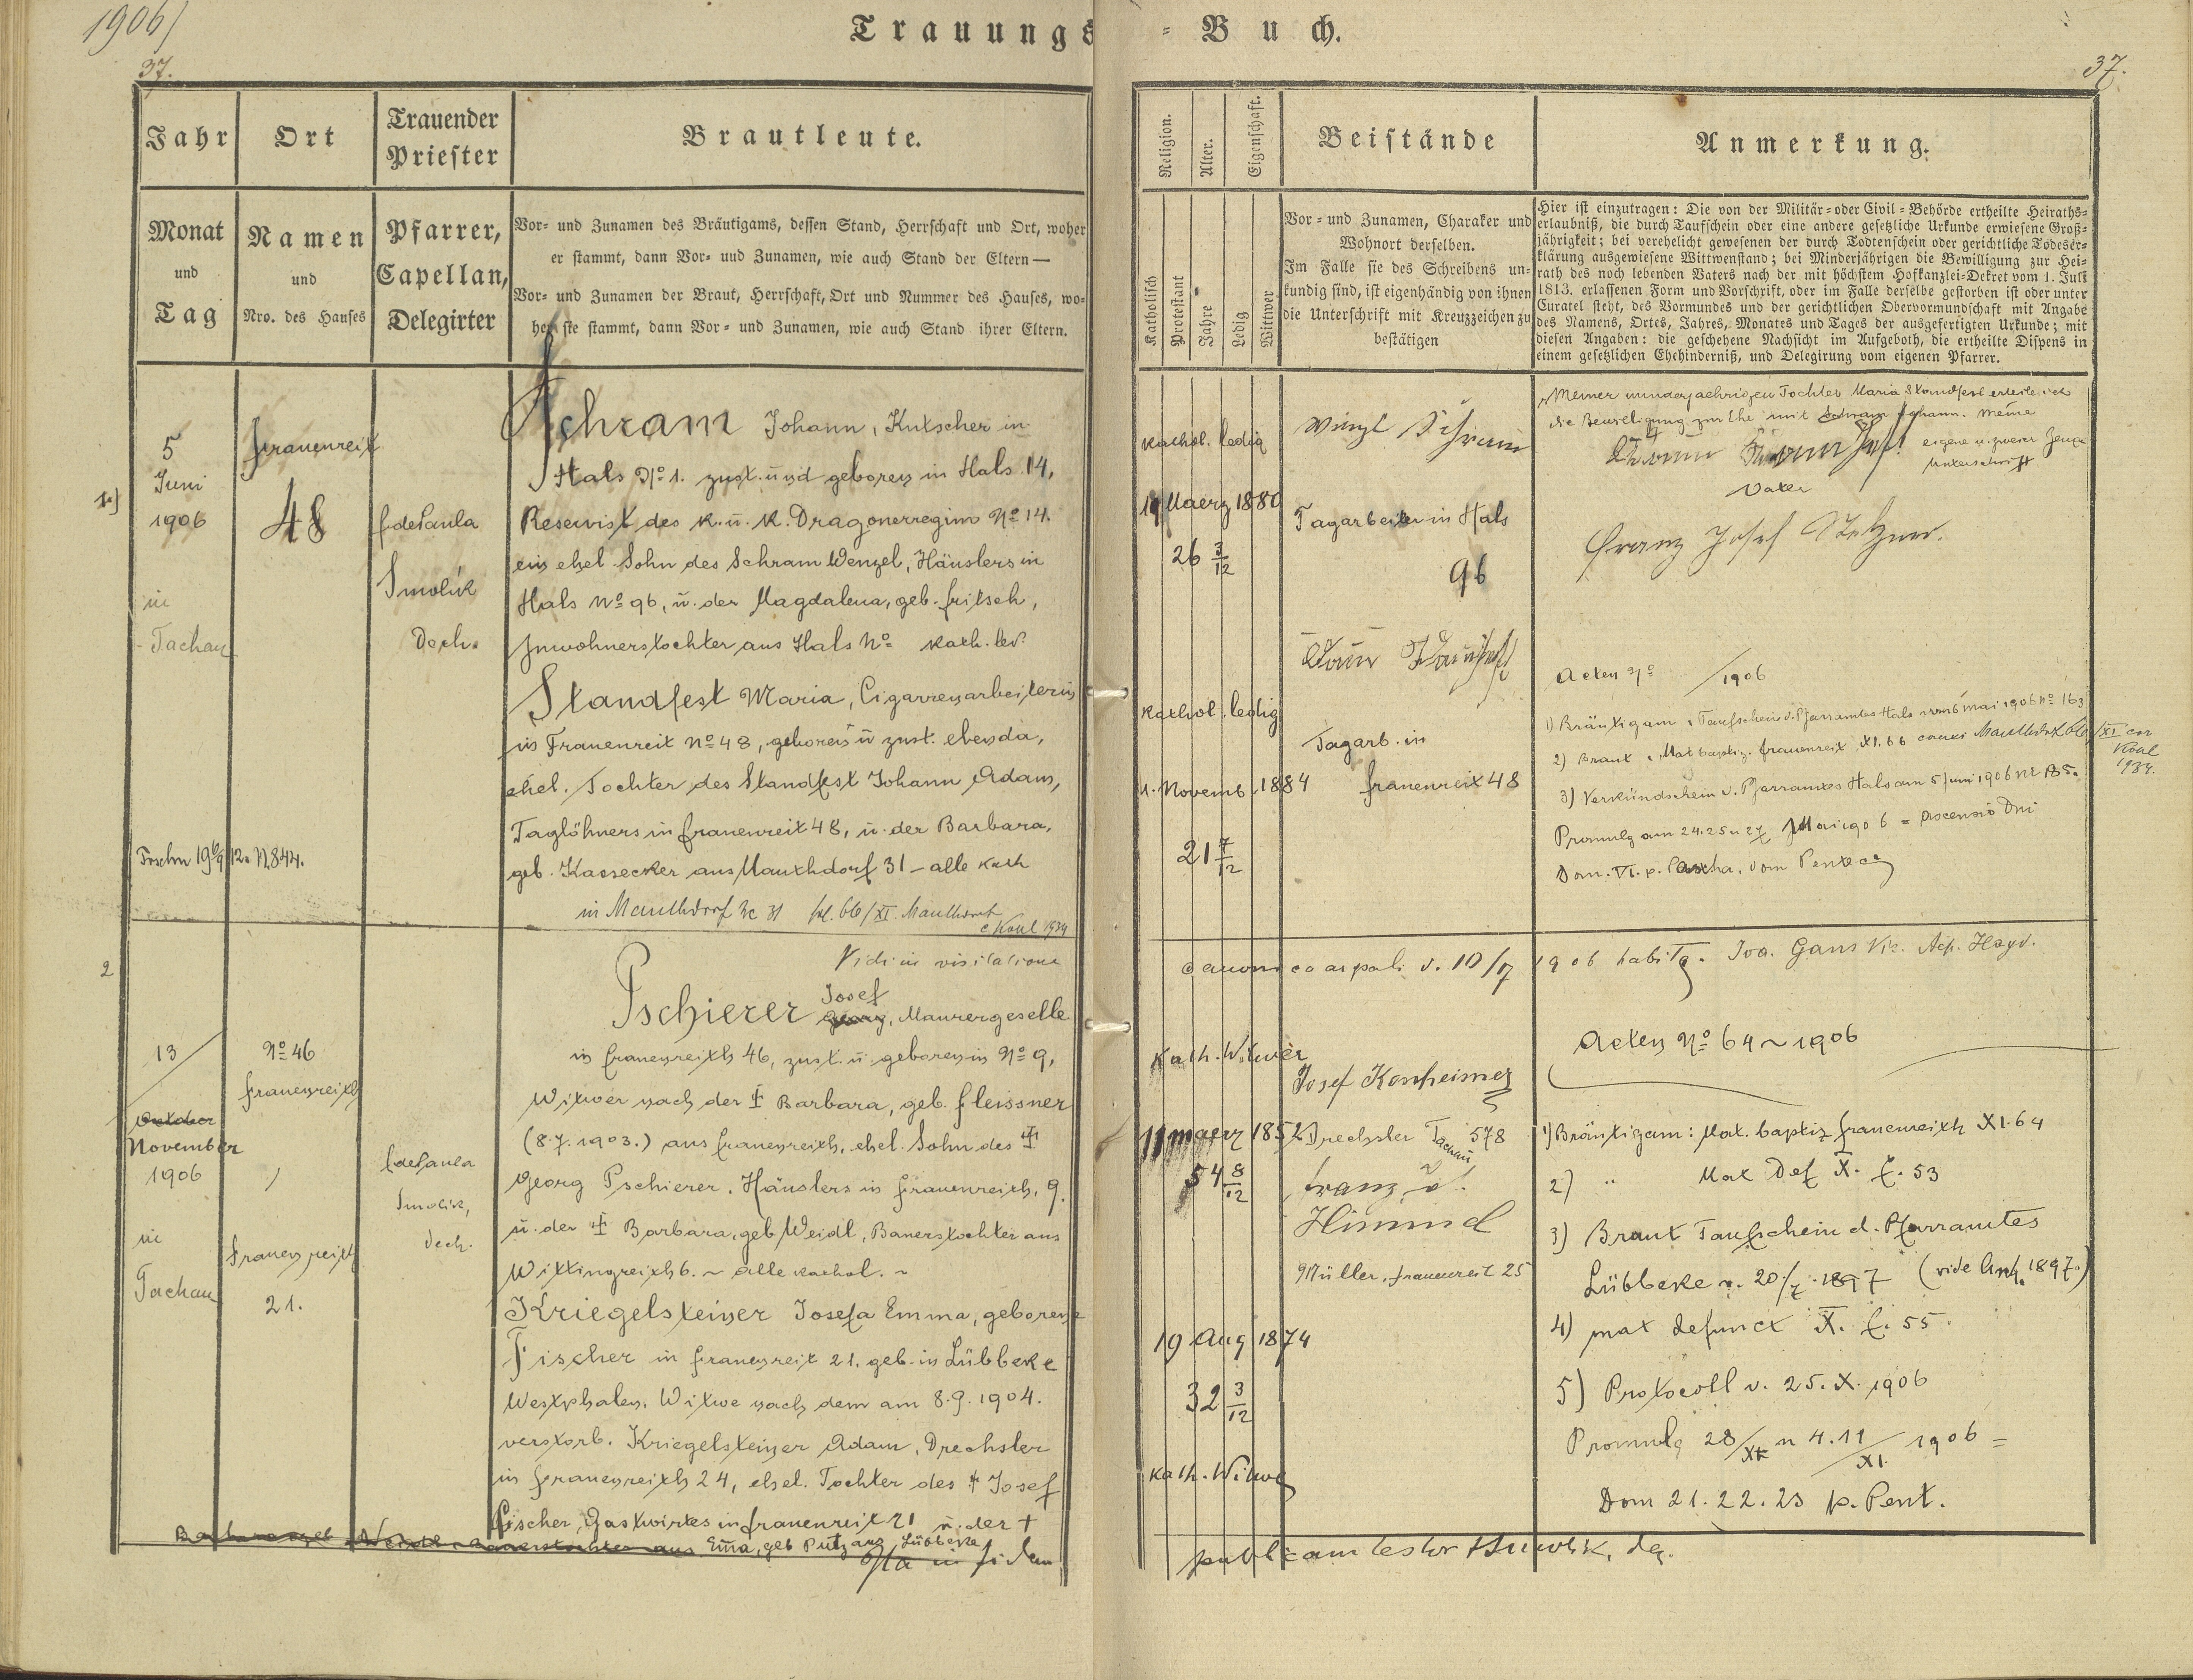 1906/
37.
Trauungs = Buch.
37.
Jahr
Monat
und
Tag
Ort
Namen
und
Nro. des Hauses
Trauender
Priester
Pfarrer,
Capellan,
Delegirter
Brautleute.
Vor= und Zunamen des Bräutigams, dessen Stand, Herrschaft und Ort, woher
er stammt, dann Vor= uud Zunamen, wie auch Stand der Eltern —
Vor= und Zunamen der Braut, Herrschaft, Ort und Nummer des Hauses, wo=
her sie stammt, dann Vor= und Zunamen, wie auch Stand ihrer Eltern.
Religion.
Alter.
Eigenschaft.
Katholisch
Protestant
Jahre
Ledig
Wittwer
Beistände
Vor= und Zunamen, Charakter und
Wohnort derselben.
Im Falle sie des Schreibens un=
kundig sind, ist eigenhändig von ihnen
die Unterschrift mit Kreuzzeichen zu
bestätigen
Anmerkung.
Hier ist einzutragen: Die von der Militär= oder Civil=Behörde ertheilte Heiraths=
erlaubniß, die durch Taufschein oder eine andere gesetzliche Urkunde erwiesene Groß=
jährigkeit; bei verehelicht gewesenen der durch Todtenschein oder gerichtliche Todeser=
klärung ausgewiesene Wittwenstand; bei Minderjährigen die Bewilligung zur Hei=
rath des noch lebenden Vaters nach der mit höchstem Hofkanzlei=Dekret vom 1. Juli
1813. erlassenen Form und Vorschrift, oder im Falle derselbe gestorben ist oder unter
Curatel steht, des Vormundes und der gerichtlichen Obervormundschaft mit Angabe
des Namens, Ortes, Jahres, Monates und Tages der ausgefertigten Urkunde; mit
diesen Angaben: die geschehene Nachsicht im Aufgeboth, die ertheilte Dispens in
einem gesetzlichen Ehehinderniß, und Delegirung vom eigenen Pfarrer.
1.)
5
Juni
1906
in
Tachau
Frauenreit
48
f de Paula
Smolik
Dech.
Schram Johann, Kutscher in
Hals No 1. zust. und geboren in Hals 14,
Reservist des k. u. k. Dragonerregim No 14.
ein ehel Sohn des Schram Wenzel, Häuslers in
Hals No 96, u. der Magdalena, geb. Fritsch,
Inwohnerstochter aus Hals No kath. led.
Standfest Maria, Cigarrenarbeiterin
in Frauenreit No 48, geboren u zust. ebenda,
ehel. Tochter des Standfest Johann Adam,
Taglöhners in Frauenreit 48, u. der Barbara,
geb. Kassecker aus Mauthdorf 31 – alle kath
in Mauthdorf Nc 31 fol. 66/XI. Mauthdorf
1934
kathol. ledig
19 Maerz 1880
26 3/12
kathol. ledig
11. Novemb. 1884
21 7/12
Tagarbeiter in Hals
96
Tagarb. in
Frauenreit 48
Meiner minderjaehrigen Tochter Maria Standfest erteile ich
die Bewilligung zur Ehe mit Schram Johann. Meine
eigene u. zweier Zeugen
Unterschrift
Vater
Franz Josef
Acten No /1906
1) Bräutigam: Taufschein d. Pfarramtes Hals vom 6 Mai 1906 No 163
2) Braut: Mat baptiz. Frauenreit XI. 66
1934.
3) Verkündschein v. Pfarramtes Hals am 5 Juni 1906
Promulg am 24. 25 u 27 Mai 1906 = Ascensio Dni
Dom. VI. p. Pascha, Dom Pentec
Vidi in visitatione canonica 1906 habita. Joa. Gans Vic.
2
13
October
November
1906
in
Tachau
No 46
Frauenreith
Frauenreith
21.
f de Paula
Smolik,
Dech.
Pschierer Josef Georg, Maurergeselle
in Frauenreith 46, zust. u. geboren in No 9,
Witwer nach der † Barbara, geb. Fleissner
(8.7.1903.) aus Frauenreith, ehel. Sohn des †
Georg Pschierer, Häuslers in Frauenreith, 9.
u. der † Barbara, geb Weidl, Bauerstochter aus
Wittingreith 6. ~ alle kathol. ~
Kriegelsteiner Josefa Emma, geborene
Fischer in Frauenreit 21. geb. in Lübbeke
Westphalen, Witwe nach dem am 8.9.1904.
verstorb. Kriegelsteiner Adam, Drechsler
in Frauenreith 24, ehel. Tochter des † Josef
Fischer, Gastwirtes in Frauenreit 21 u. der †
Emma, geb Putz aus Lübbeke
Ita in fidem
kath. Witwer
11 Maerz 1852
54 8/12
19 Aug 1874
32 3/12
kath. Witwe
Josef Konheiner
Drechsler Tachau 578
Franz
Himml
Müller, Frauenreit 25
Acten No 64 ~ 1906
1) Bräutigam: Mat. baptiz Frauenreith XI. 64
2) " Mat Def X. f. 53
3) Braut Taufschein d. Pfarramtes
Lübbeke v. 20/7. 1897 (vide Anh. 1897.)
4) mat defunct X. f. 55.
5) Protocoll v. 25. X. 1906
Promulg 28/X u 4. 11/XI. 1906 =
Dom 21. 22. 23 p. Pent.
publicam testor Smolik, dec.